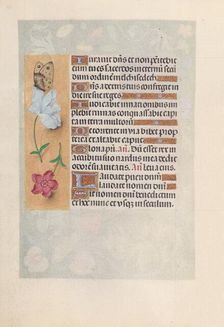 Iuravit dns et non penitebit
eum tu es sacerdos in eternum se
cundum ordinem melchisedech
Dns a dextris tuis confregit in
die ire sue reges
Iudicabit in nationibus im
plebit ruinas conquassabit capita in
terra multorum
De torrente in via bibet prop
terea exaltabit caput
Gloria pri. An. Dum esset rex in
accubitu suo nardus mea dedit
odorem suavitatis An. leua eius
Laudate pueri dominum
laudate nomen domini
nomen domini benedictum
ex hoc nunc et usque in seculum